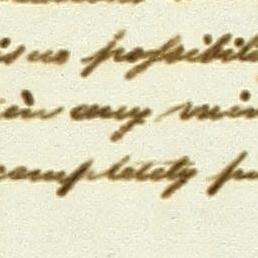 is no possibili
in any min
completely pu